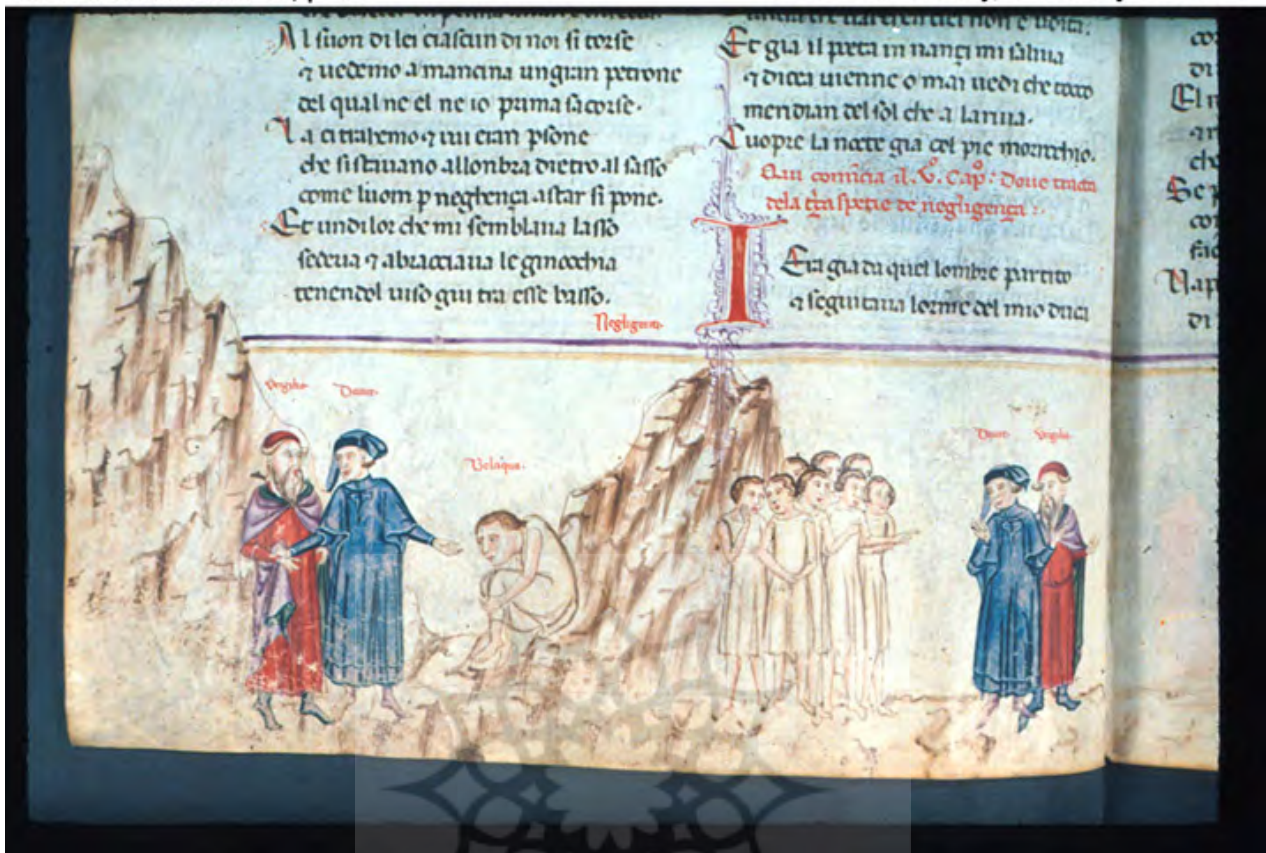 Al suon di lei ciascun di noi si torse
⁊ uedemo a mancina un gran petrone
del qual ne el ne io prima sacorse.
La ci traemo ⁊ iui eran psone
che si stauano allonbra dietro al sasso
come luom p neghença a star si pone.
Et un di lor che mi semblaua lasso
sedeua ⁊ abracciaua le ginocchia
tenendol uiso giu tra esse basso.
Negligentia
Et gia il poeta innançi mi saliua
⁊ dicea uienne o mai uedi che tocco
meridian del sol che a la riua.
Cuopre la nocte gia col pie morrocchio.
Qui comincia il .V. Cap.o Doue tracta
dela terza spetie de negligença.
I
Era gia da quel lombre partito
⁊ seguitaua lorme del mio duca
Virgilio
Dante
Belaqua.
Dante
Virgilio